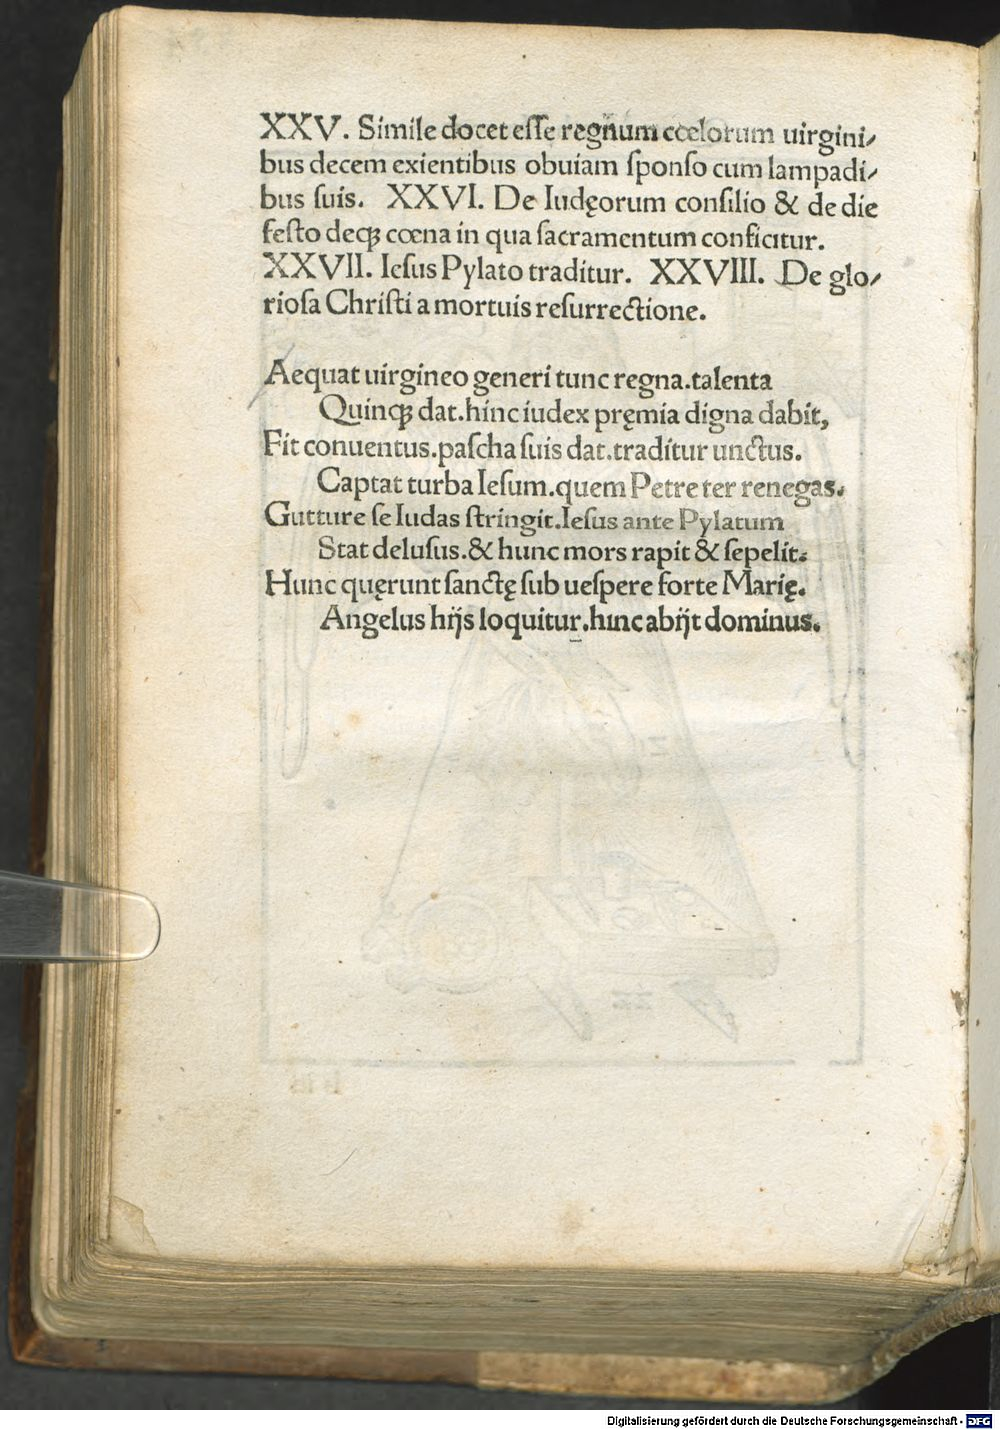 XXV. Simile docet eſſe regnum cœlorum uirgini⸗
bus decem exientibus obuiam ſponſo cum lampadi⸗
bus ſuis. XXVI. De Iudęorum conſilio & de die
feſto deqꝫ cœna in qua ſacramentum conficitur.
XXVII. Ieſus Pylato traditur. XXVIII. De glo⸗
rioſa Chriſti a mortuis reſurrectione.
Aequat uirgineo generi tunc regna.talenta
Quinqꝫ dat.hinc iudex pręmia digna dabit,
Fit conuentus.paſcha ſuis dat.traditur unctus.
Captat turba Ieſum.quem Petre ter renegas.
Gutture ſe Iudas ſtringit.Ieſus ante Pylatum
Stat deluſus.& hunc mors rapit & ſepelit.
Hunc quęrunt ſanctę ſub ueſpere forte Marię.
Angelus hijs loquitur.hinc abijt dominus.
Digitalisierung gefördert durch die Deutsche Forschungsgemeinschaft - DFG